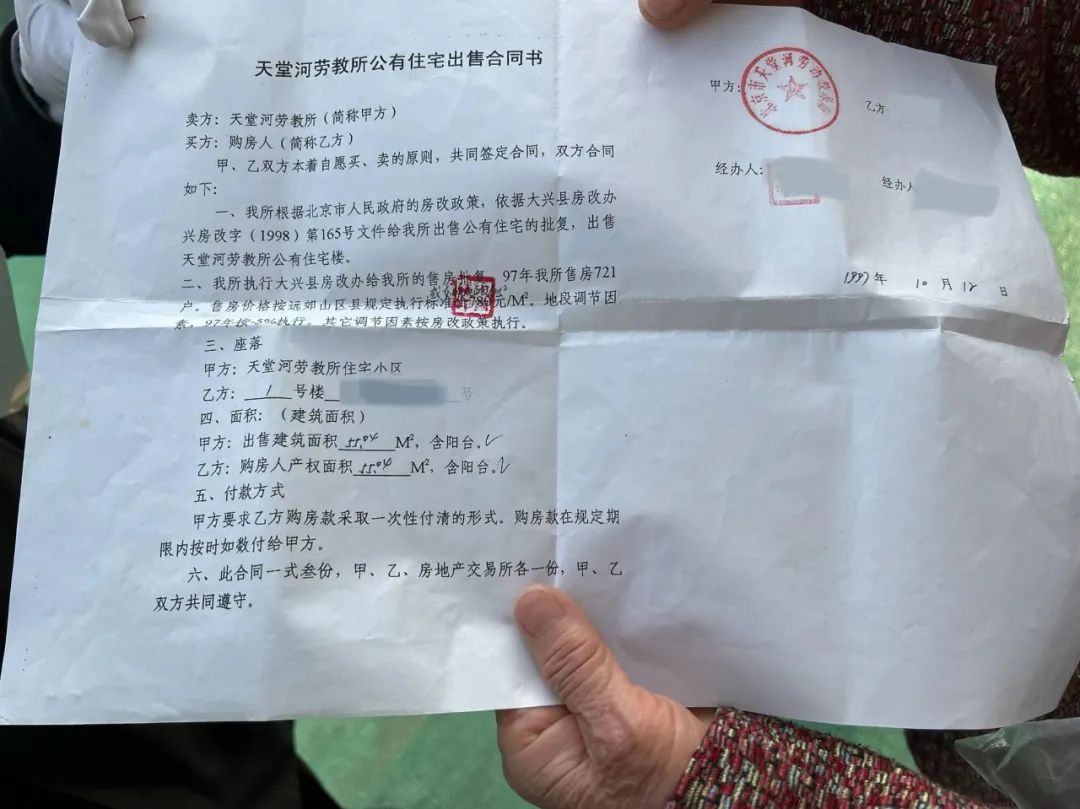 天堂河劳教所公有住宅出售合同书
卖方：天堂河劳教所（简称甲方）
买方：购房人（简称乙方）
甲、乙双方本着自愿买、卖的原则，共同签定合同，双方合同
如下：
一、我所根据北京市人民政府的房改政策，依据大兴县房改办
兴房改字（1998）第165号文件给我所出售公有住宅的批复，出售
天堂河劳教所公有住宅楼。
二、我所执行大兴县房改办给我所的售房批复，97年我所售房721
户。售房价格按远郊山区县规定执行标准780元/M²。地段调节因
素，97年按-5%执行。其它调节因素按房改政策执行。
三、座落
甲方：天堂河劳教所住宅小区
乙方：1号楼 号
四、面积：（建筑面积）
甲方：出售建筑面积55.04M²，含阳台。✓
乙方：购房人产权面积55.04M²，含阳台。✓
五、付款方式
甲方要求乙方购房款采取一次性付清的形式。购房款在规定期
限内按时如数付给甲方。
六、此合同一式叁份，甲、乙、房地产交易所各一份，甲、乙
双方共同遵守。
甲方：
北京市天堂河劳动
乙方
经办人：
经办人
1997年 10月12日